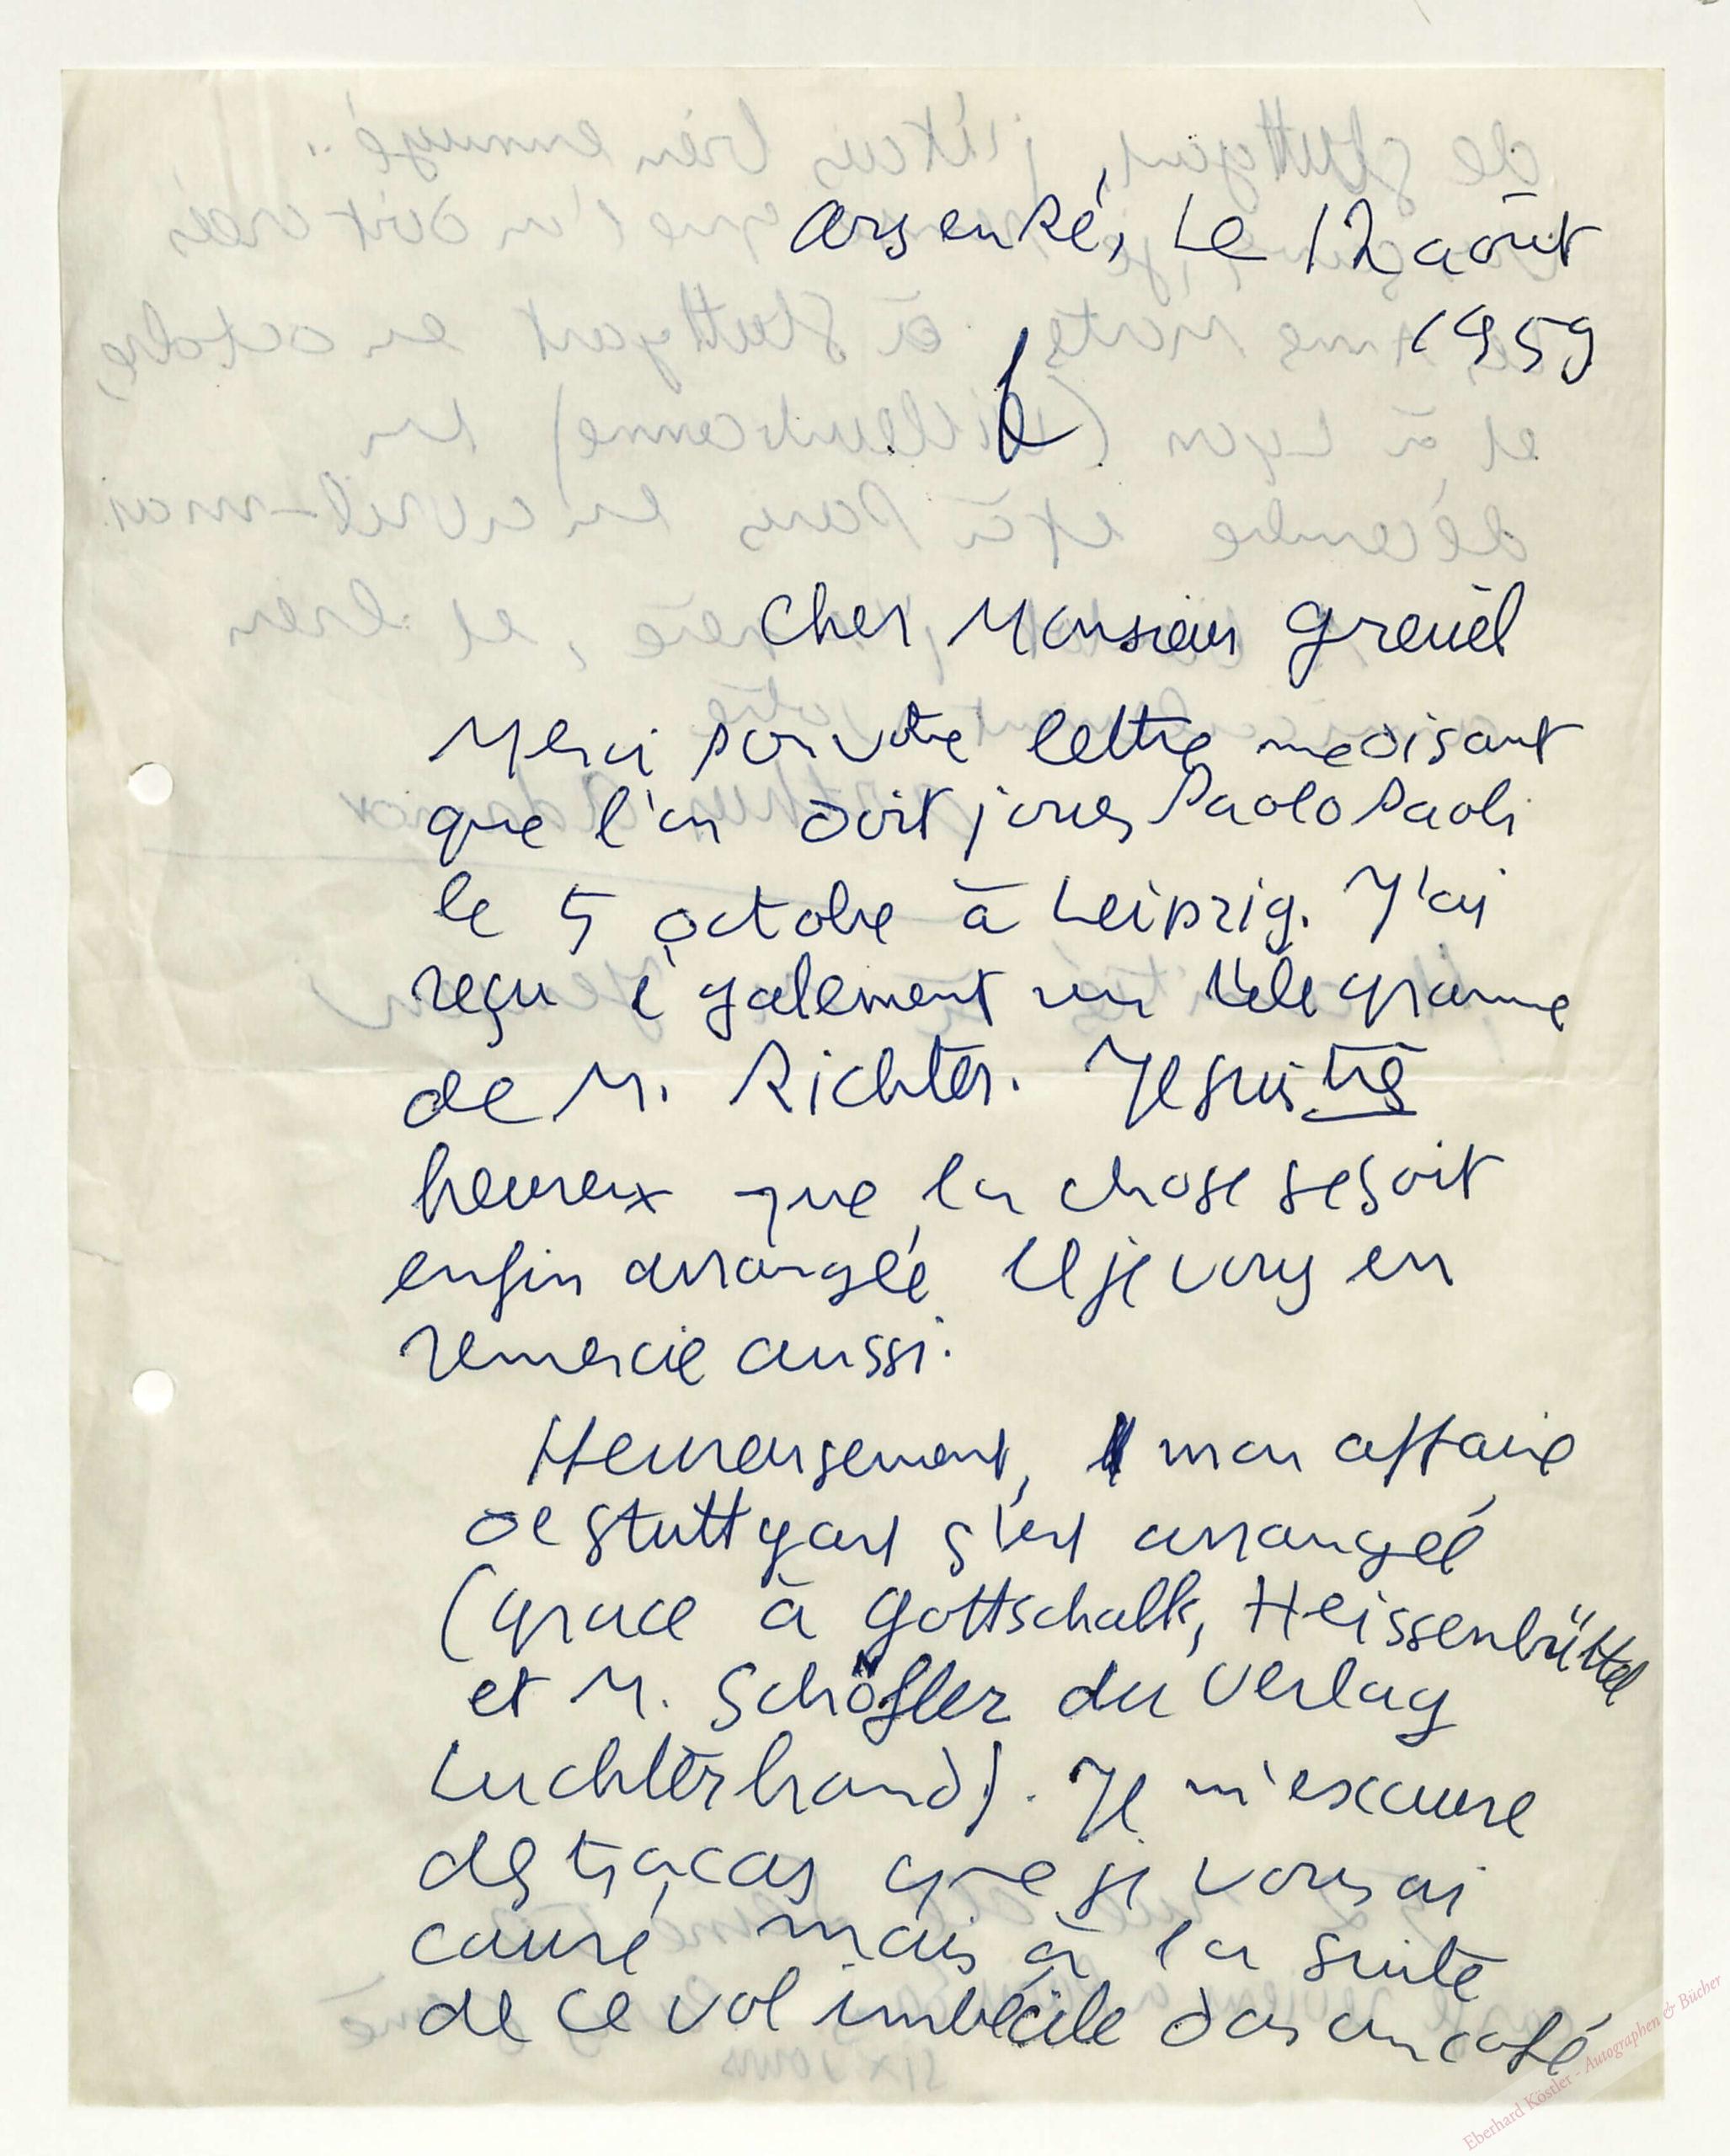 Ars en Ré, Le 12 août
1959
Cher Monsieur Greuèl
Merci pour votre lettre me disant
que l'on doit jouer Paolo Paoli
le 5 octobre à Leipzig. J'ai
reçu également un télégramme
de M. Richter. Je suis très
heureux que la chose se soit
enfin arrangée et je vous en
remercie aussi.
Heureusement, mon affaire
de Stuttgart s'est arrangée
(grace à Gottschalk, Heissenbüttel
et M. Schöfler du Verlag
Luchterhand). Je m'excuse
des tracas que je vous ai
causé mais à la suite
de ce vol imbécile dans un café
Eberhard Köstler - Autographen & Bücher